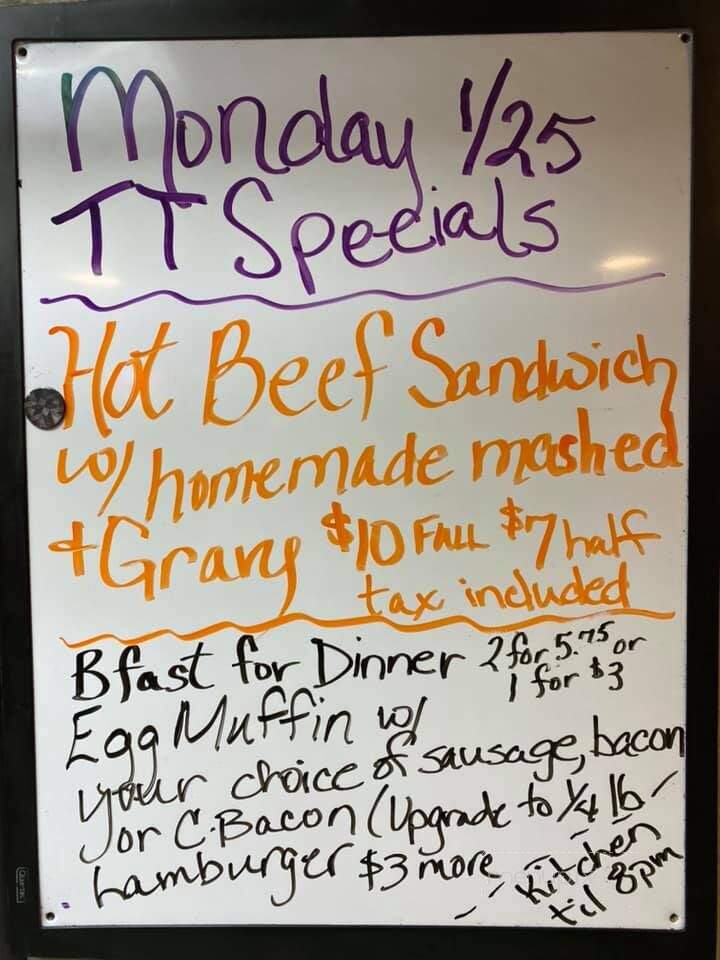 Monday 1/25
TT Specials
Hot Beef Sandwich
w/ homemade mashed
+ Gravy $10 FULL $7 half
tax included
Bfast for Dinner 2 for 5.75 or
1 for $3
Egg Muffin w/
your choice of sausage, bacon
or C.Bacon (Upgrade to 1/4 lb
hamburger $3 more
Kitchen
til 8pm